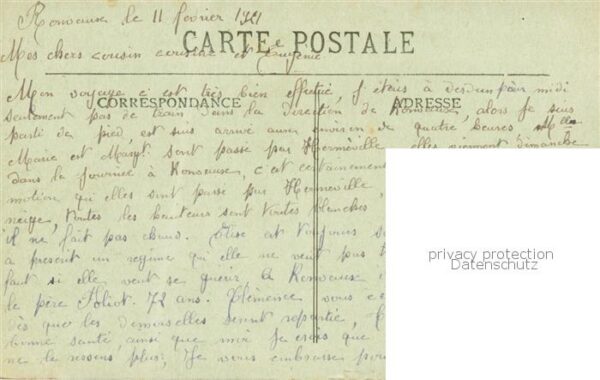 Ronvaux le 11 février 1921
Mes chers cousin cousine et Eugénie
CARTE POSTALE
Mon voyage ci est très bien effectué, j'étais à Verdun pour midi
CORRESPONDANCE
ADRESSE
seulement pas de train dans la direction de Ronvaux, alors je suis
parti de pied, est suis arrivé aux environ de quatre heures Melles
Marie est Marg. sont passé par Hermeville, elles viennent dimanche
dans la journée à Ronvaux, c'est certainement
motion qui elles ont passé par Hermeville,
neige, toutes les hauteurs sont toutes blanches
il ne fait pas chaud. Elise est toujours
a present un regime qu'elle ne veut pas
faut si elle veut se guérir. A Ronvaux
le père Foliot. 72 ans. Clémence vous
dès que les demoiselles seront repartie,
bonne santé, ainsi que moi je crois que
ne la ressens plus, Je vous embrasse pour
privacy protection
Datenschutz